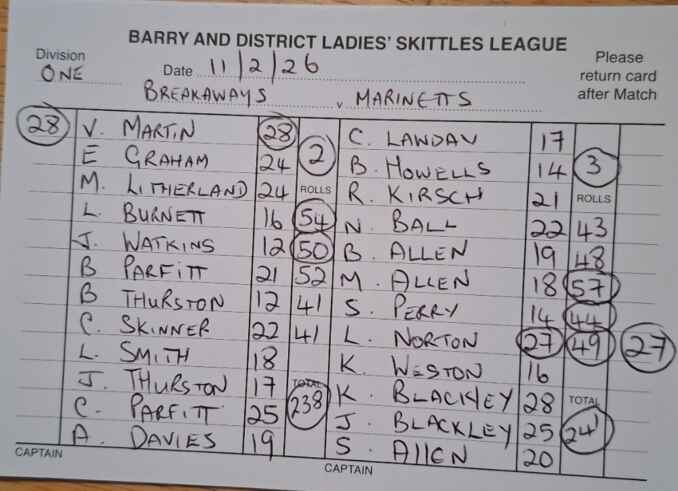 BARRY AND DISTRICT LADIES' SKITTLES LEAGUE
Division
ONE
Date 11/2/26
Please
return card
after Match
BREAKAWAYS v MARINETTS
28
V. MARTIN 28
E GRAHAM 24
M. LITHERLAND 24
L. BURNETT 16
J. WATKINS 12
B PARFITT 21
B THURSTON 12
C. SKINNER 22
L. SMITH 18
J. THURSTON 17
C. PARFITT 25
A. DAVIES 19
2
ROLLS
54
50
52
41
41
TOTAL
238
C. LANDAU 17
B. HOWELLS 14
R. KIRSCH 21
N. BALL 22
B. ALLEN 19
M. ALLEN 18
S. PERRY 14
L. NORTON 27
K. WESTON 16
K. BLACKLEY 28
J. BLACKLEY 25
S. AllEN 20
3
ROLLS
43
48
57
44
49
TOTAL
241
27
CAPTAIN
CAPTAIN